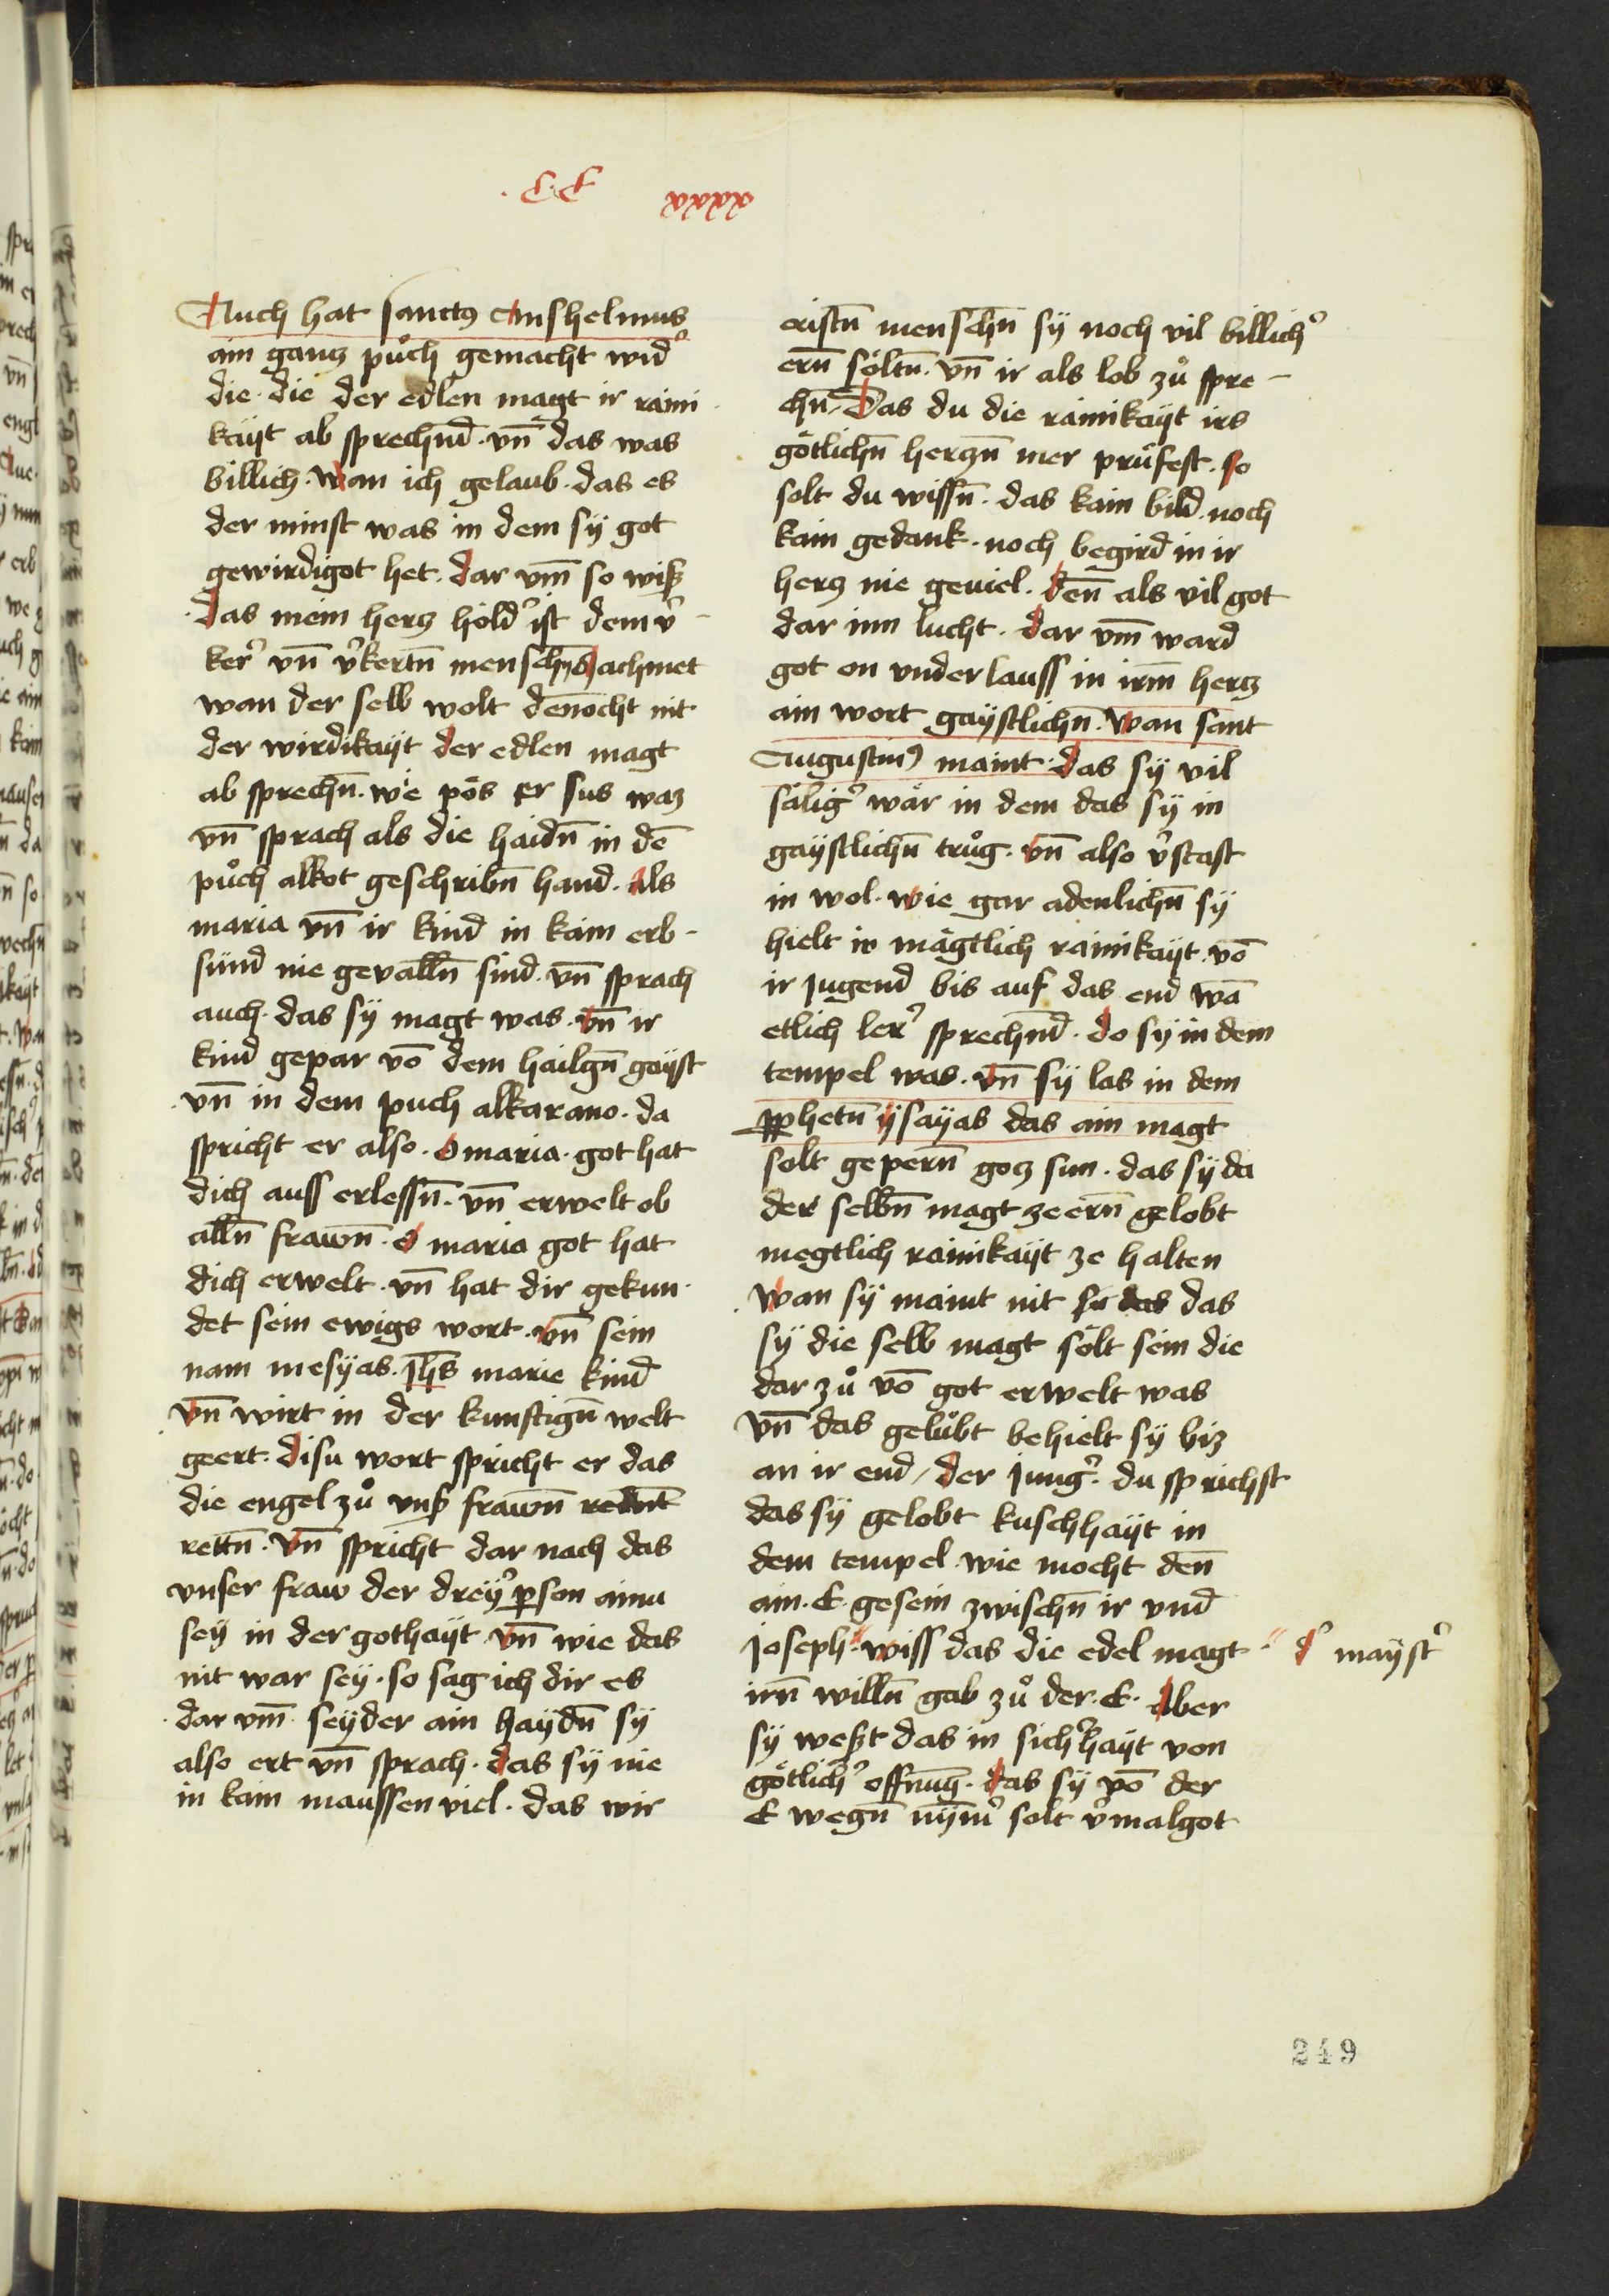 · C · C xxxx
Auch hat sanctꝰ Anshelmus
ain gantz puͦch gemacht widʼ
die · die der edlen magt ir raini
kayt ab sprechnd̄ · vn̄ das was
billich · wan ich gelaub · das es
der minst was in dem sy got
gewirdigot het · dar vm̄ so wiß
das mein hertz holdʼ ist dem vʼ
kerʼ vn̄ vʼkertn̄ menschn̄ achmet
wan der selb wolt den̄ocht nit
der wirdikayt der edlen magt
ab sprechn̄ · wie poͤs er sus waz
vn̄ sprach als die haidn̄ in dē
puͦch alkot geschribn̄ hand · als
maria vn̄ ir kind in kain erb-
sünd nie gevalln̄ sind · vn̄ sprach
auch · das sy magt was · vn̄ ir
kind gepar vō dem hailgn̄ gayst
vn̄ in dem puch alkarano · da
spricht er also · O maria · got hat
dich auss erlessn̄ · vn̄ erwelt ob
alln̄ frawn̄ · O maria got hat
dich erwelt · vn̄ hat dir gekun-
det sein ewigs wort · vn̄ sein
nam mesyas · jhs̄ marie kind
vn̄ wirt in der kunftign̄ welt
geert · disu wort spricht er das
die engel zuͦ vnß frawn̄ rednt
rettn̄ · Vn̄ spricht dar nach das
vnser fraw der dreyʼ ꝑson ainu
sey in der gothayt · vn̄ wie das
nit war sey · so sag ich dir es
dar vm̄ · seyder ain haydn̄ sy
also ert vn̄ sprach · das sy nie
in kain maussen viel · das wir
cristn̄ menschn̄ sy noch vil billichʼ
ern̄ soͤltn̄ · vn̄ ir als lob zuͦ spre-
chn̄ / Das du die rainikayt irs
goͤtlichn̄ hertzn̄ mer pruͤfest · so
solt du wissn̄ · das kain bild · noch
kain gedank · noch begird in ir
hertz nie geviel · den̄ als vil got
dar inn lucht · dar vm̄ ward
got on vnderlauss in irm̄ hertz
ain wort gaystlichn̄ · wan sant
Augustinꝰ maint · das sy vil
saͤligʼ waͤr in dem das sy in
gaystlichn̄ truͦg · vn̄ also vʼstast
in wol · wie gar adenlichn̄ sy
hielt ir maͤgtlich rainikayt · vō
ir jugend bis auf das end wā
etlich lerʼ sprechnd̄ · do sy in dem
tempel was · vn̄ sy las in dem
ꝓphetn̄ ysayas das ain magt
solt gepern̄ gotz sun · das sy da
der selbn̄ magt ze ern̄ gelobt
megtlich rainikayt ze halten
wan sy maint nit su das das
sy die selb magt soͤlt sein die
dar zuͦ vō got erwelt was
vn̄ das geluͤbt behielt sy biz
an ir end / der jungʼ · du sprichst
das sy gelobt kuschhayt in
dem tempel · wie mocht den̄
ain · E · gesein zwischn̄ ir vnd
joseph · wiss das die edel magt · dʼ maystʼ
irn̄ willn̄ gab zuͦ der · E · Aber
sy weßt das in sichʼhayt von
goͤtlichʼ offnūg · das sy vō der
E wegn̄ nym̄ʼ solt vʼmalgot
249